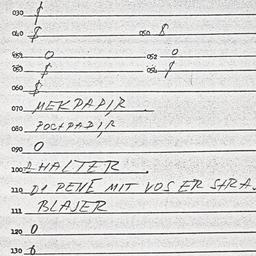 030 $
040 $ 050 $
051 0 052 0
053 $ 054 $
060 $
070 MEKPAPIR.
080 POCKPAPIR
090 0
100 ZHALTER.
110 DI PENE MIT VOS ER SHRA
111 BLAJER
120 0
130 0